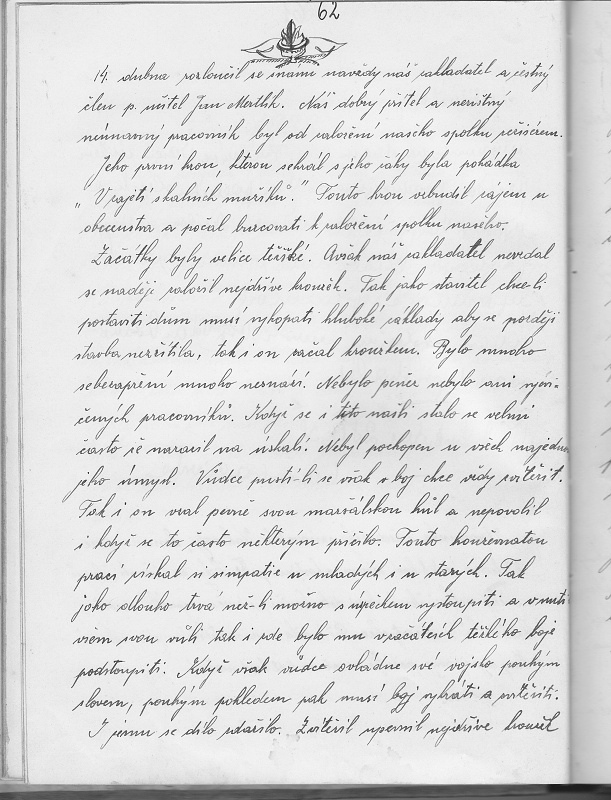 62
14. dubna rozloučil se s námi navždy náš zakladatel a čestný
člen p. učitel Jan Mertlík. Náš dobrý přítel a nezištný
neúnavný pracovník byl od založení našeho spolku režisérem.
Jeho první hrou, kterou sehrál s jeho žáky byla pohádka
„V zajetí skalních mužíků." Touto hrou vzbudil zájem u
obecenstva a počal burcovati k založení spolku našeho.
Začátky byly velice těžké. Avšak náš zakladatel nevzdal
se naděje založil nejdříve kroužek. Tak jako stavitel chce-li
postaviti dům musí vykopati hluboké základy aby se později
stavba nezřítila, tak i on začal kroužkem. Bylo mnoho
sebezapření mnoho nesnází. Nebylo peněz nebylo ani vycvi-
čených pracovníků. Když se i tito našli stalo se velmi
často že narazil na úskalí. Nebyl pochopen u všech najednou
jeho úmysl. Vůdce pustí-li se však v boj chce vždy zvítězit.
Tak i on vzal pevně svou maršálskou hůl a nepovolil
i když se to často některým příčilo. Touto houževnatou
prací získal si simpatie u mladých i u starých. Tak
jako dlouho trvá než-li možno s úspěchem vystoupiti a vnutiti
všem svou vůli tak i zde bylo mu v začátcích těžkého boje
podstoupiti. Když však vůdce ovládne své vojsko pouhým
slovem, pouhým pohledem pak musí boj vyhráti a zvítěziti.
I jemu se dílo zdařilo. Zvítězil upevnil nejdříve kroužek